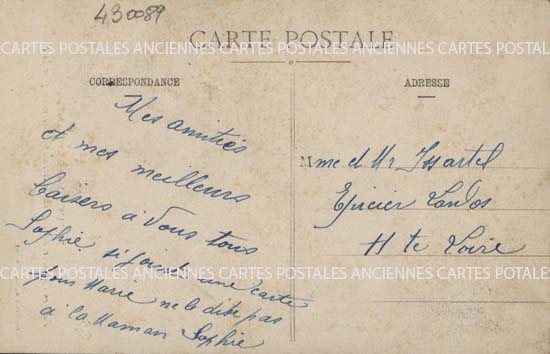 430089
CARTE POSTALE
CARTES POSTALES ANCIENNES CARTES POSTALES ANCIENNES CARTES POSTALES
CORRESPONDANCE
Mes amitiés
et mes meilleurs
baisers a vous tous
Sophie. si joint une carte
pour Marie ne le dite pas
à la Maman Sophie
ADRESSE
Mme et Mr Issartel
Epicier Landos
Hte Loire
CARTES POSTALES ANCIENNES CARTES POSTALES ANCIENNES CARTES POTALES